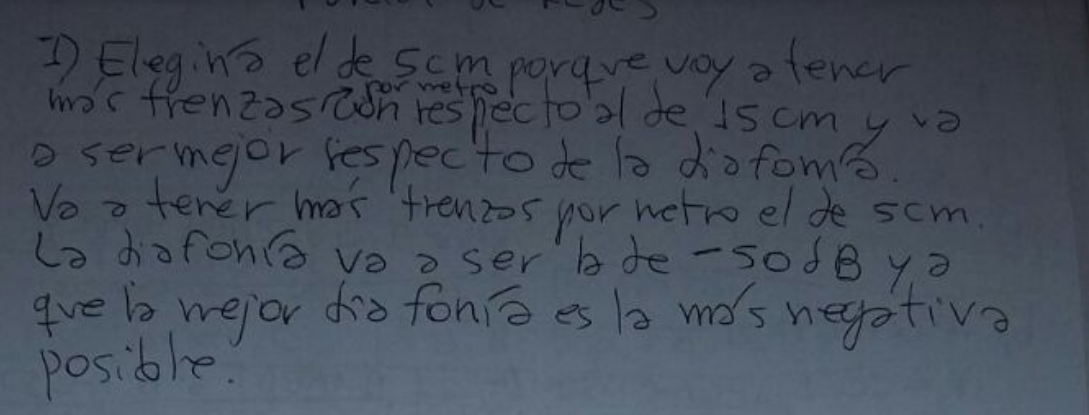 de Redes
1) Elegiría el de 5cm porque voy a tener
más trenzas por metro con respecto al de 15cm y va
a ser mejor respecto de la diafonía.
Va a tener más trenzas por metro el de 5cm.
La diafonía va a ser la de -50dB ya
que la mejor diafonía es la más negativa
posible.